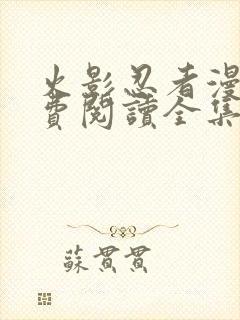 火影忍者漫
費閱讀全集
蘇貫貫